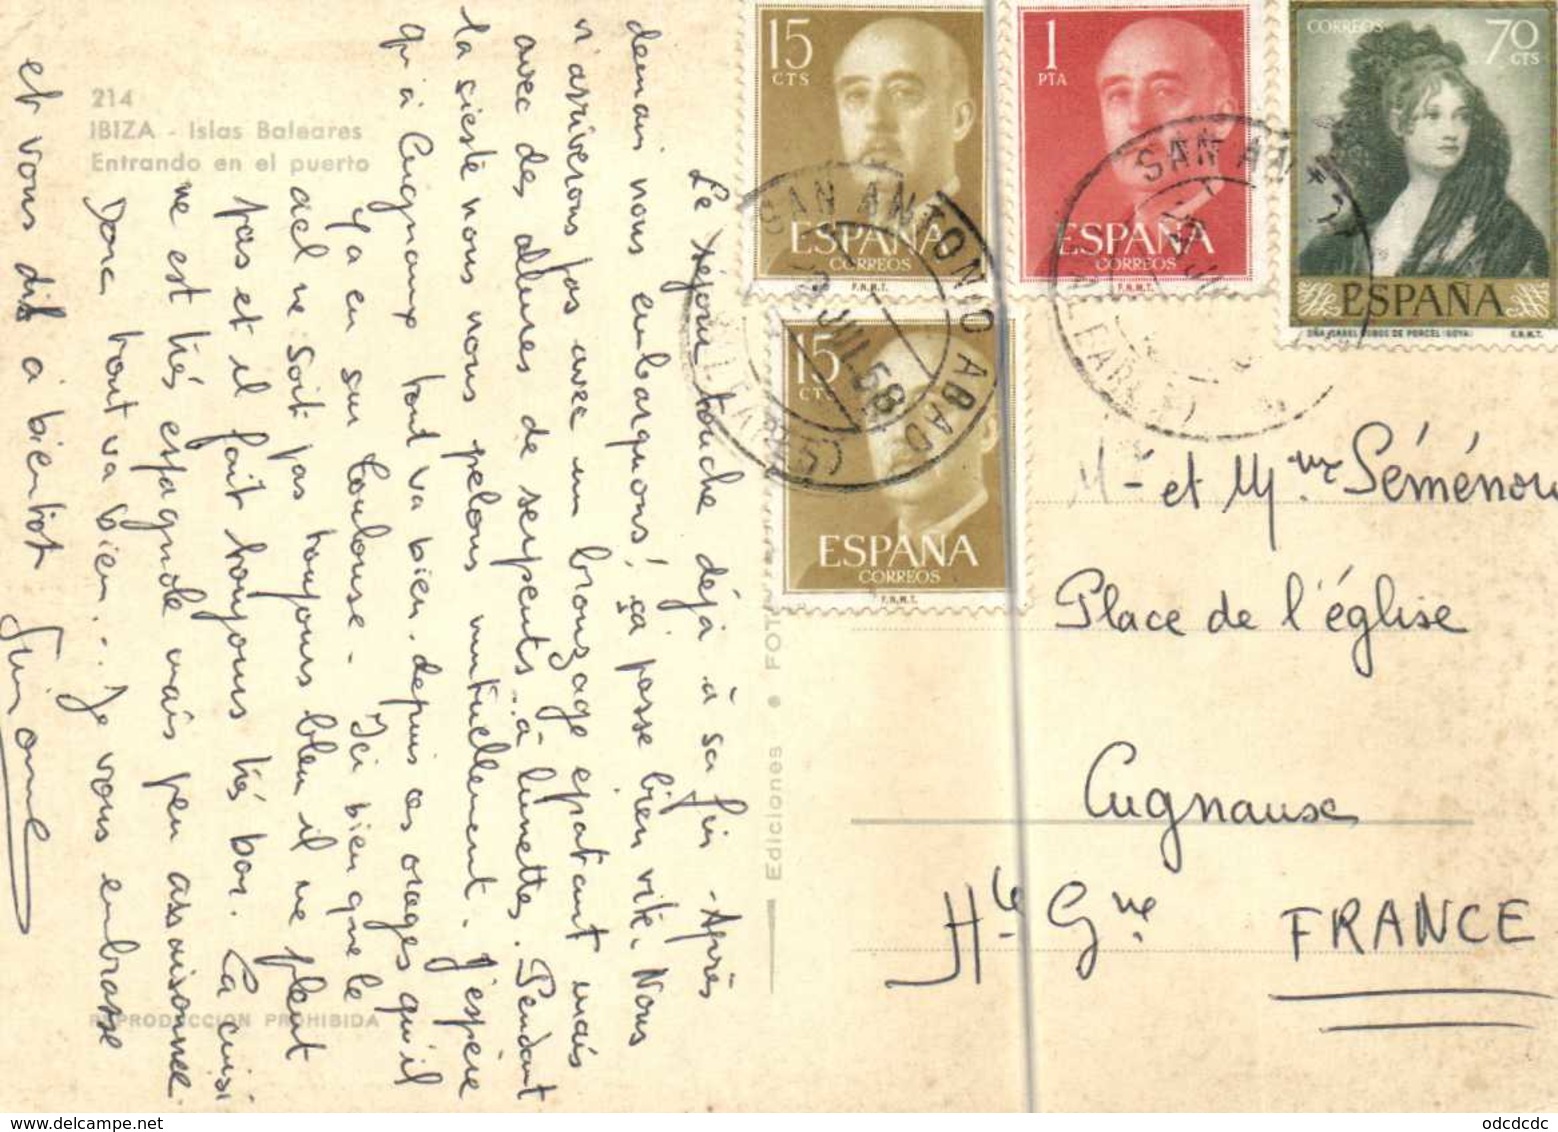 214
IBIZA - Islas Baleares
Entrando en el puerto
Le séjour touche déjà à sa fin - Après
demain nous embarquons! ça passe bien vite. Nous
n'arriverons pas avec un bronzage epatant mais
avec des allures de serpents.. à lunettes. Pendant
la sieste nous nous pelons mutuellement. J'espère
qu'à Cugnaux tout va bien. depuis ces orages qu'il
y a eu sur Toulouse. Ici bien que le
ciel ne soit pas toujours bleu il ne pleut
pas et il fait toujours très bon. La cuisi
ne est très espagnole mais peu assaisonnée
Donc tout va bien... Je vous embrasse
et vous dis à bientôt
Simone
REPRODUCCION PROHIBIDA
Ediciones • FOT
15
CTS
ESPAÑA
CORREOS
F.N.M.T.
1
PTA
ESPAÑA
CORREOS
F.N.M.T.
CORREOS
70
CTS
ESPAÑA
DÑA ISABEL COBOS DE PORCEL (GOYA)
F.N.M.T.
15
CTS
ESPAÑA
CORREOS
F.N.M.T.
SAN ANTONIO ABAD
(BALEARES)
JUL 58
SAN AN
(BALEARES)
M. et Mme Séménou
Place de l'église
Cugnaux
Hte Gne FRANCE
odcdcdc